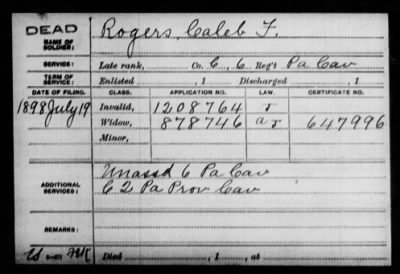 DEAD
NAME OF SOLDIER:
Rogers, Caleb F.
SERVICE:
Late rank, Co. C, 6 Reg't Pa Cav
TERM OF SERVICE:
Enlisted , 1 Discharged , 1
DATE OF FILING. CLASS. APPLICATION NO. LAW. CERTIFICATE NO.
1898 July 19 Invalid, 1208764 r
Widow, 878746 a r 647996
Minor,
ADDITIONAL SERVICES:
Unassd 6 Pa Cav
C 2 Pa Prov Cav
REMARKS:
Died , 1 , at